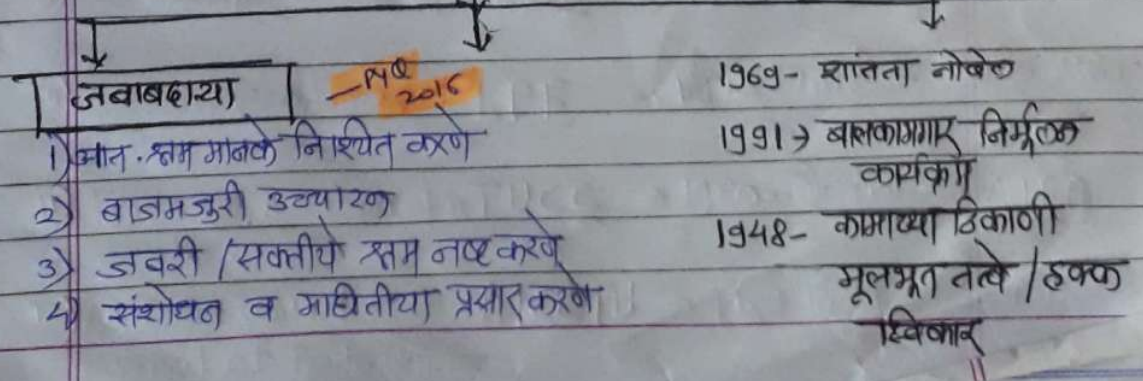 जबाबदाऱ्या
- PYQ
2016
1) आंत. श्रम मानके निश्चित करणे
2) बालमजुरी उच्चाटन
3) जबरी / सक्तीचे श्रम नष्ट करणे
4) संशोधन व माहितीचा प्रसार करणे
1969 - शांतता नोबेल
1991 → बालकामगार निर्मूलन
कार्यक्रम
1948 - कामाच्या ठिकाणी
मूलभूत तत्वे / हक्क
स्विकार